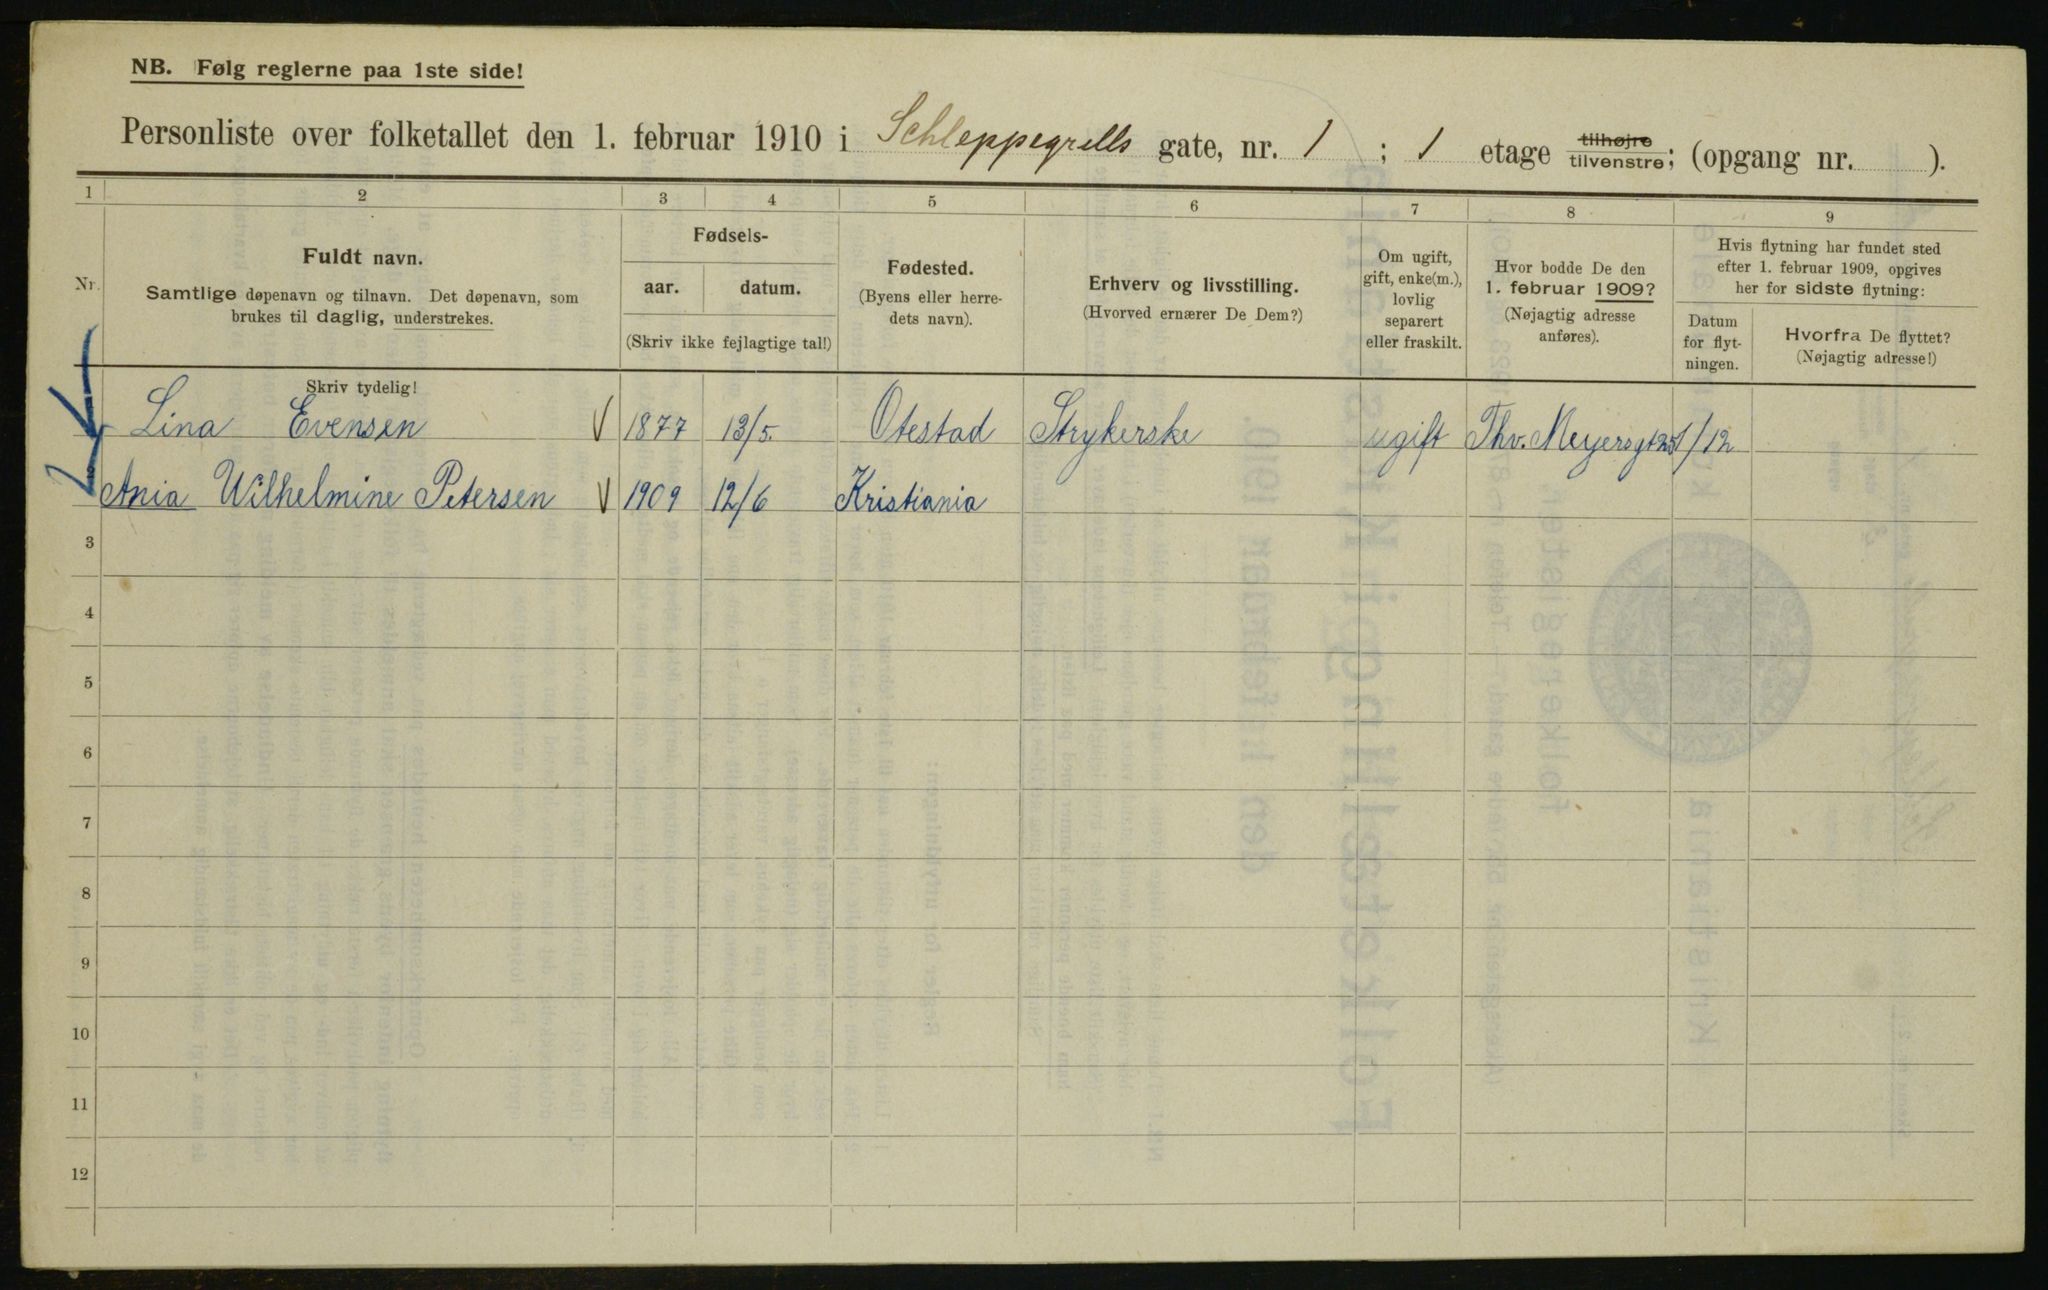 NB. Følg reglerne paa 1ste side!
Personliste over folketallet den 1. februar 1910 i Schleppegrells gate, nr. 1 ; 1 etage tilhøjre tilvenstre; (opgang nr. ).
1 2 3 4 5 6 7 8 9
Nr.
Fuldt navn.
Samtlige døpenavn og tilnavn. Det døpenavn, som
brukes til daglig, understrekes.
Skriv tydelig!
Fødsels-
aar. datum.
(Skriv ikke fejlagtige tal!)
Fødested.
(Byens eller herre-
dets navn).
Erhverv og livsstilling.
(Hvorved ernærer De Dem?)
Om ugift,
gift, enke(m.),
lovlig
separert
eller fraskilt.
Hvor bodde De den
1. februar 1909?
(Nøjagtig adresse
anføres).
Hvis flytning har fundet sted
efter 1. februar 1909, opgives
her for sidste flytning:
Datum
for flyt-
ningen.
Hvorfra De flyttet?
(Nøjagtig adresse!)
Lina Evensen V 1877 13/5. Otestad Strykerske ugift Thv. Meyersgt 25 1/12
Ania Wilhelmine Petersen V 1909 12/6 Kristiania
3
4
5
6
7
8
9
10
11
12